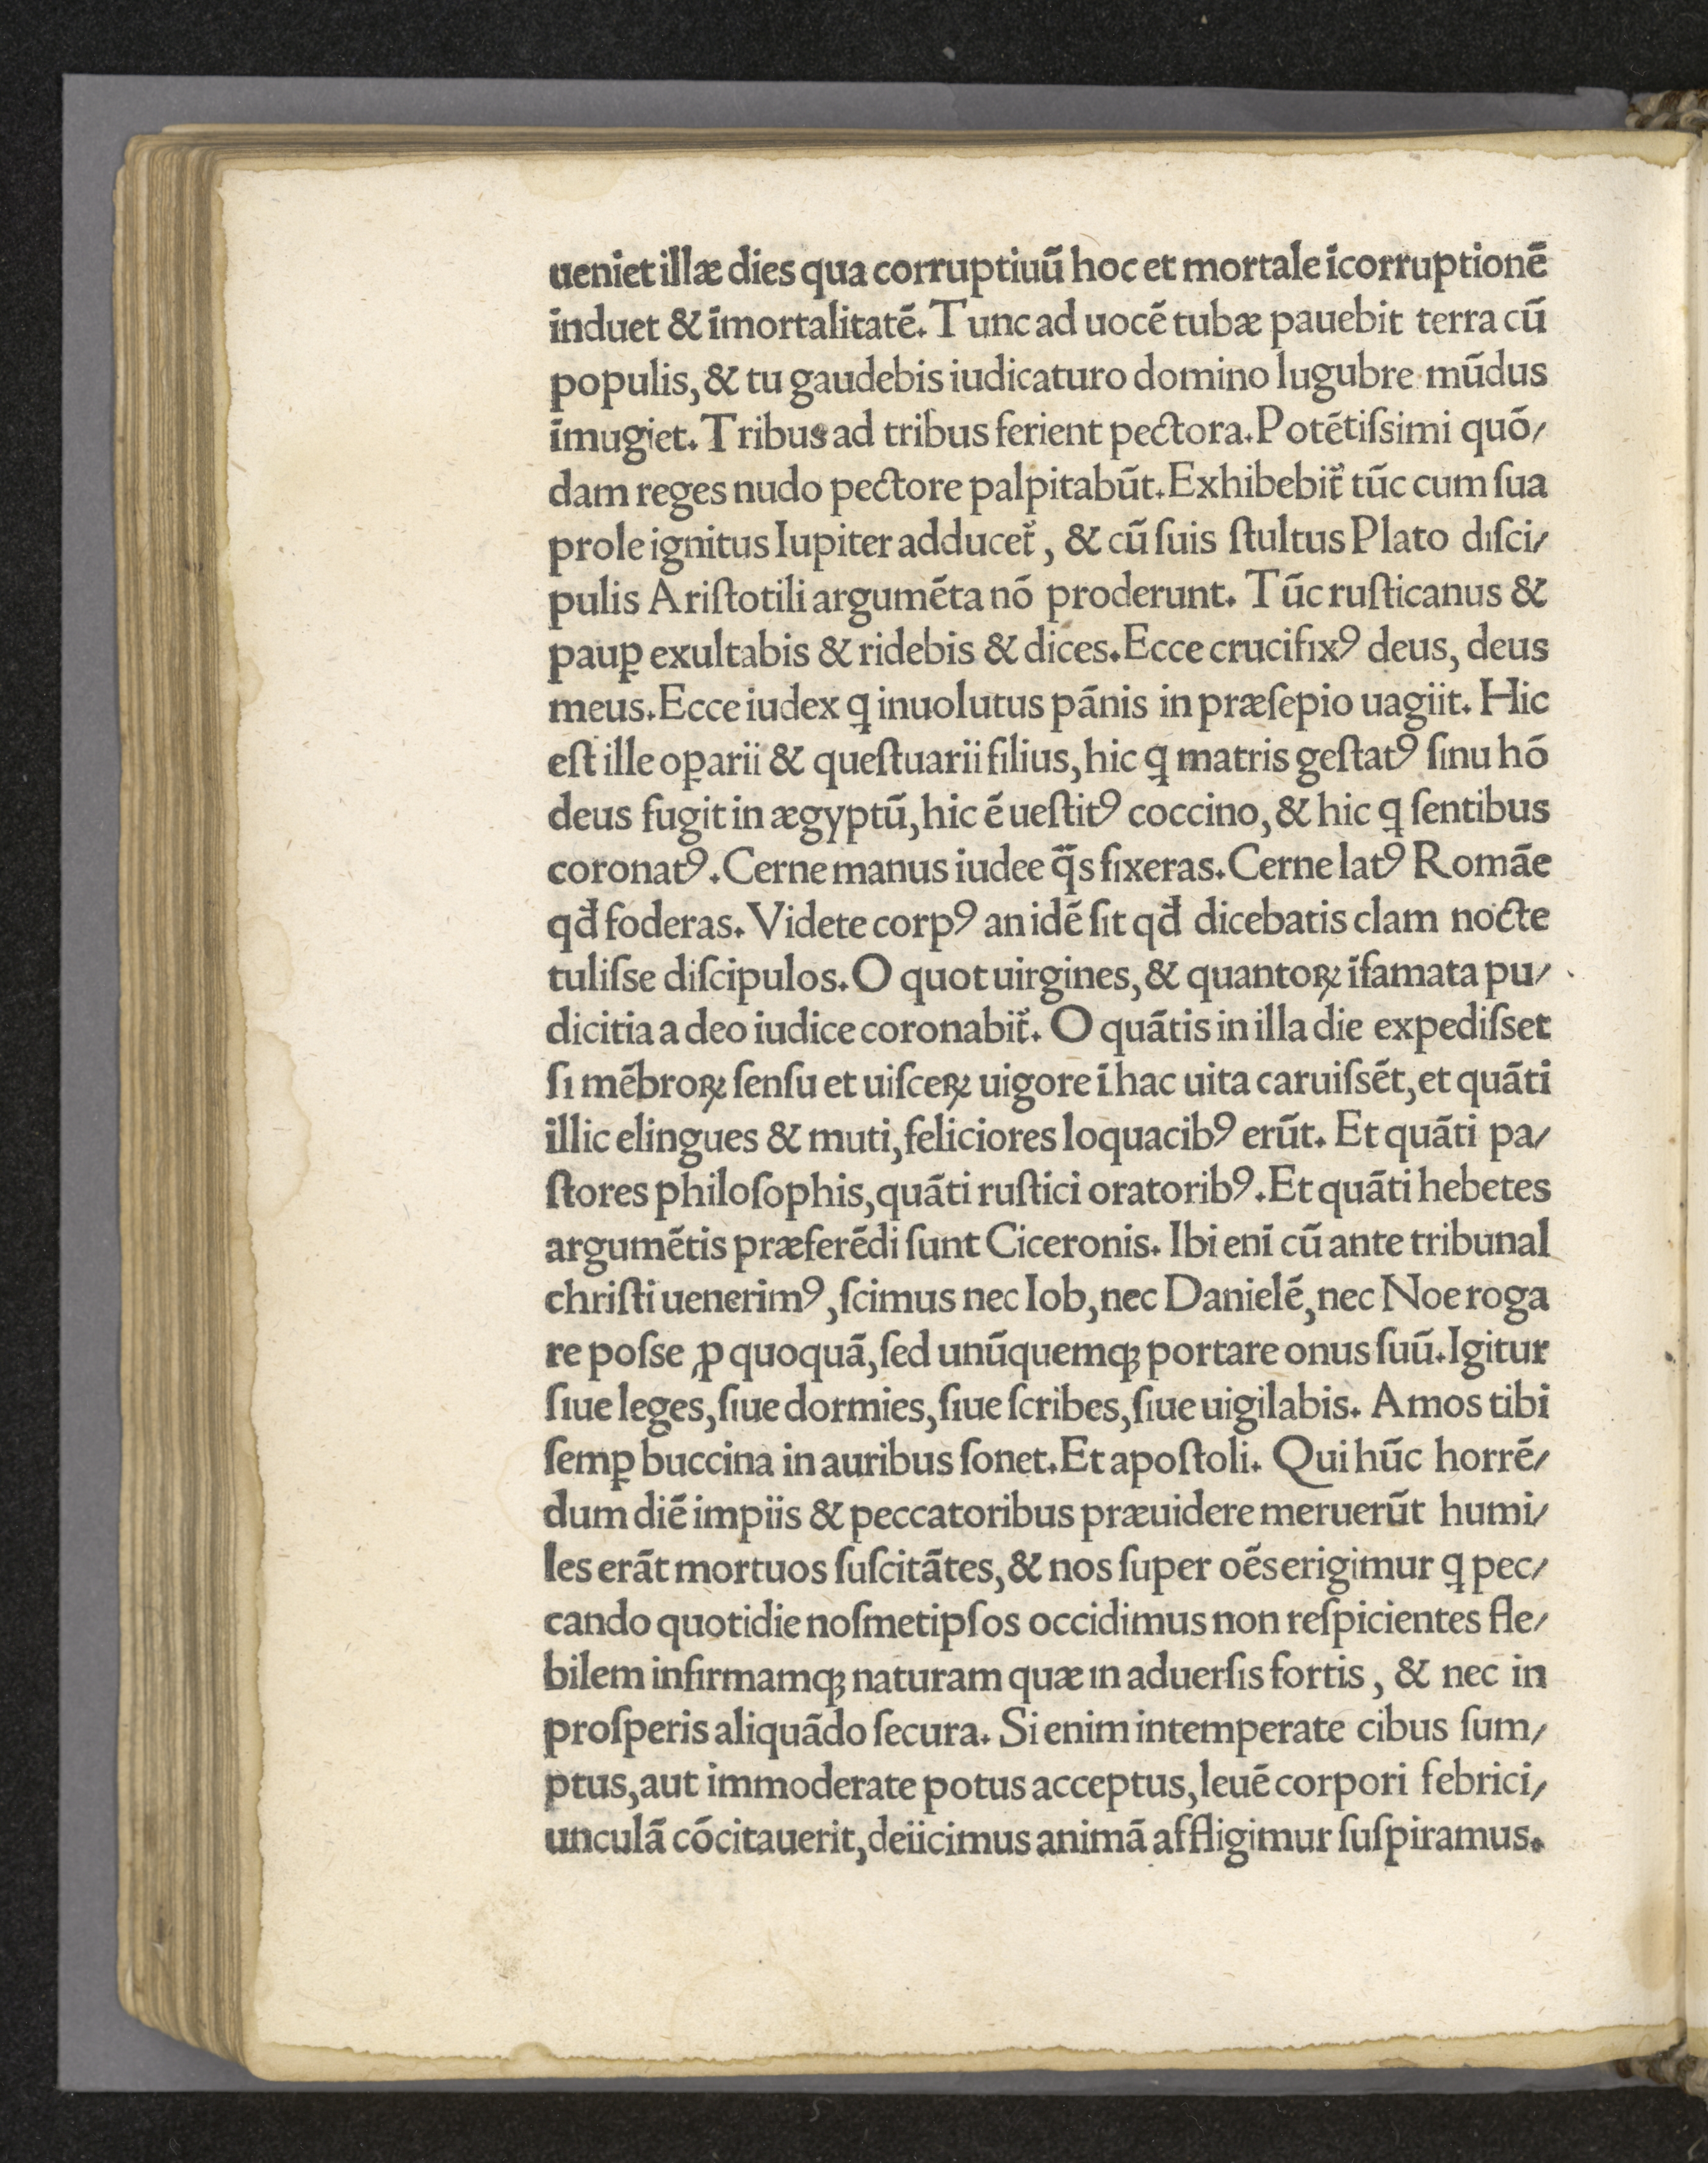 ueniet illæ dies qua corruptiuū hoc et mortale īcorruptionē
īnduet & īmortalitatē. Tunc ad uocē tubæ pauebit terra cū
populis, & tu gaudebis iudicaturo domino lugubre mūdus
īmugiet. Tribus ad tribus ferient pectora. Potētiſsimi quō/
dam reges nudo pectore palpitabūt. Exhibebit᷑ tūc cum ſua
prole ignitus Iupiter adducet᷑, & cū ſuis ſtultus Plato diſci/
pulis Ariſtotili argumēta nō proderunt. Tūc ruſticanus &
pauꝑ exultabis & ridebis & dices. Ecce crucifixꝰ deus, deus
meus. Ecce iudex ꝗ inuolutus pānis in præſepio uagiit. Hic
eſt ille oꝑarii & queſtuarii filius, hic ꝗ matris geſtatꝰ ſinu hō
deus fugit in ægyptū, hic ē ueſtitꝰ coccino, & hic ꝗ ſentibus
coronatꝰ. Cerne manus iudee q̄̄s fixeras. Cerne latꝰ Romāe
qđ foderas. Videte corpꝰ an idē ſit qđ dicebatis clam nocte
tuliſse diſcipulos. O quot uirgines, & quantoꝝ īfamata pu/
dicitia a deo iudice coronabit᷑. O quātis in illa die expediſset
ſi mēbroꝝ ſenſu et uiſceꝝ uigore ī hac uita caruiſsēt, et quāti
illic elingues & muti, feliciores loquacibꝰ erūt. Et quāti pa/
ſtores philoſophis, quāti ruſtici oratoribꝰ. Et quāti hebetes
argumētis præferēdi ſunt Ciceronis. Ibi enī cū ante tribunal
chriſti uenerimꝰ, ſcimus nec Iob, nec Danielē, nec Noe roga
re poſse ꝓ quoquā, ſed unūquemqꝫ portare onus ſuū. Igitur
ſiue leges, ſiue dormies, ſiue ſcribes, ſiue uigilabis. Amos tibi
ſemꝑ buccina in auribus ſonet. Et apoſtoli. Qui hūc horrē/
dum diē impiis & peccatoribus præuidere meruerūt humi/
les erāt mortuos ſuſcitātes, & nos ſuper oēs erigimur ꝗ pec/
cando quotidie noſmetipſos occidimus non reſpicientes fle/
bilem infirmamqꝫ naturam quæ in aduerſis fortis, & nec in
proſperis aliquādo ſecura. Si enim intemperate cibus ſum/
ptus, aut immoderate potus acceptus, leuē corpori febrici/
unculā cōcitauerit, deiicimus animā affligimur ſuſpiramus.